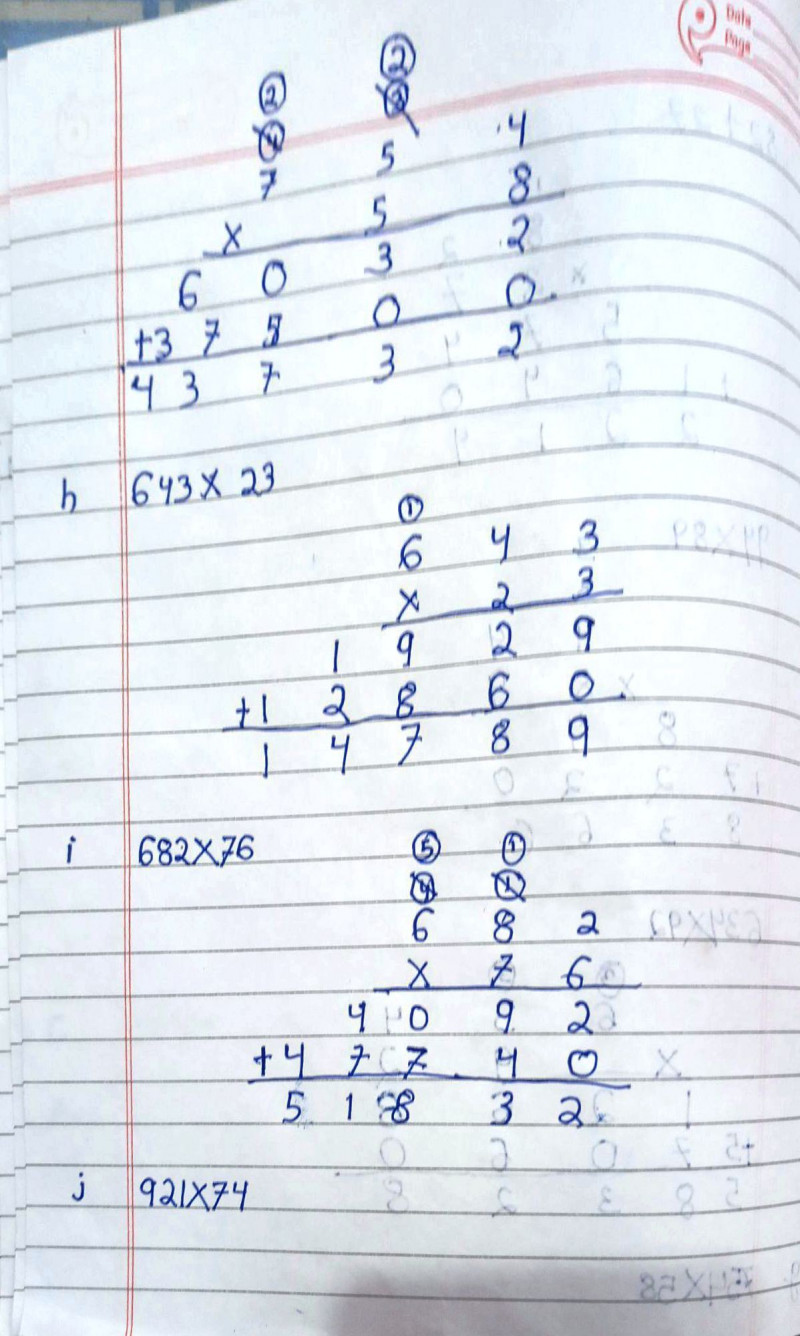 Date
Page
② ②
7 5 4
x 5 8
6 0 3 2
+3 7 0 0
4 3 7 3 2
h 643 x 23
①
6 4 3
x 2 3
1 9 2 9
+1 2 8 6 0
1 4 7 8 9
i 682x76
⑤ ①
6 8 2
x 7 6
4 0 9 2
+4 7 7 4 0
5 1 8 3 2
j 921x74